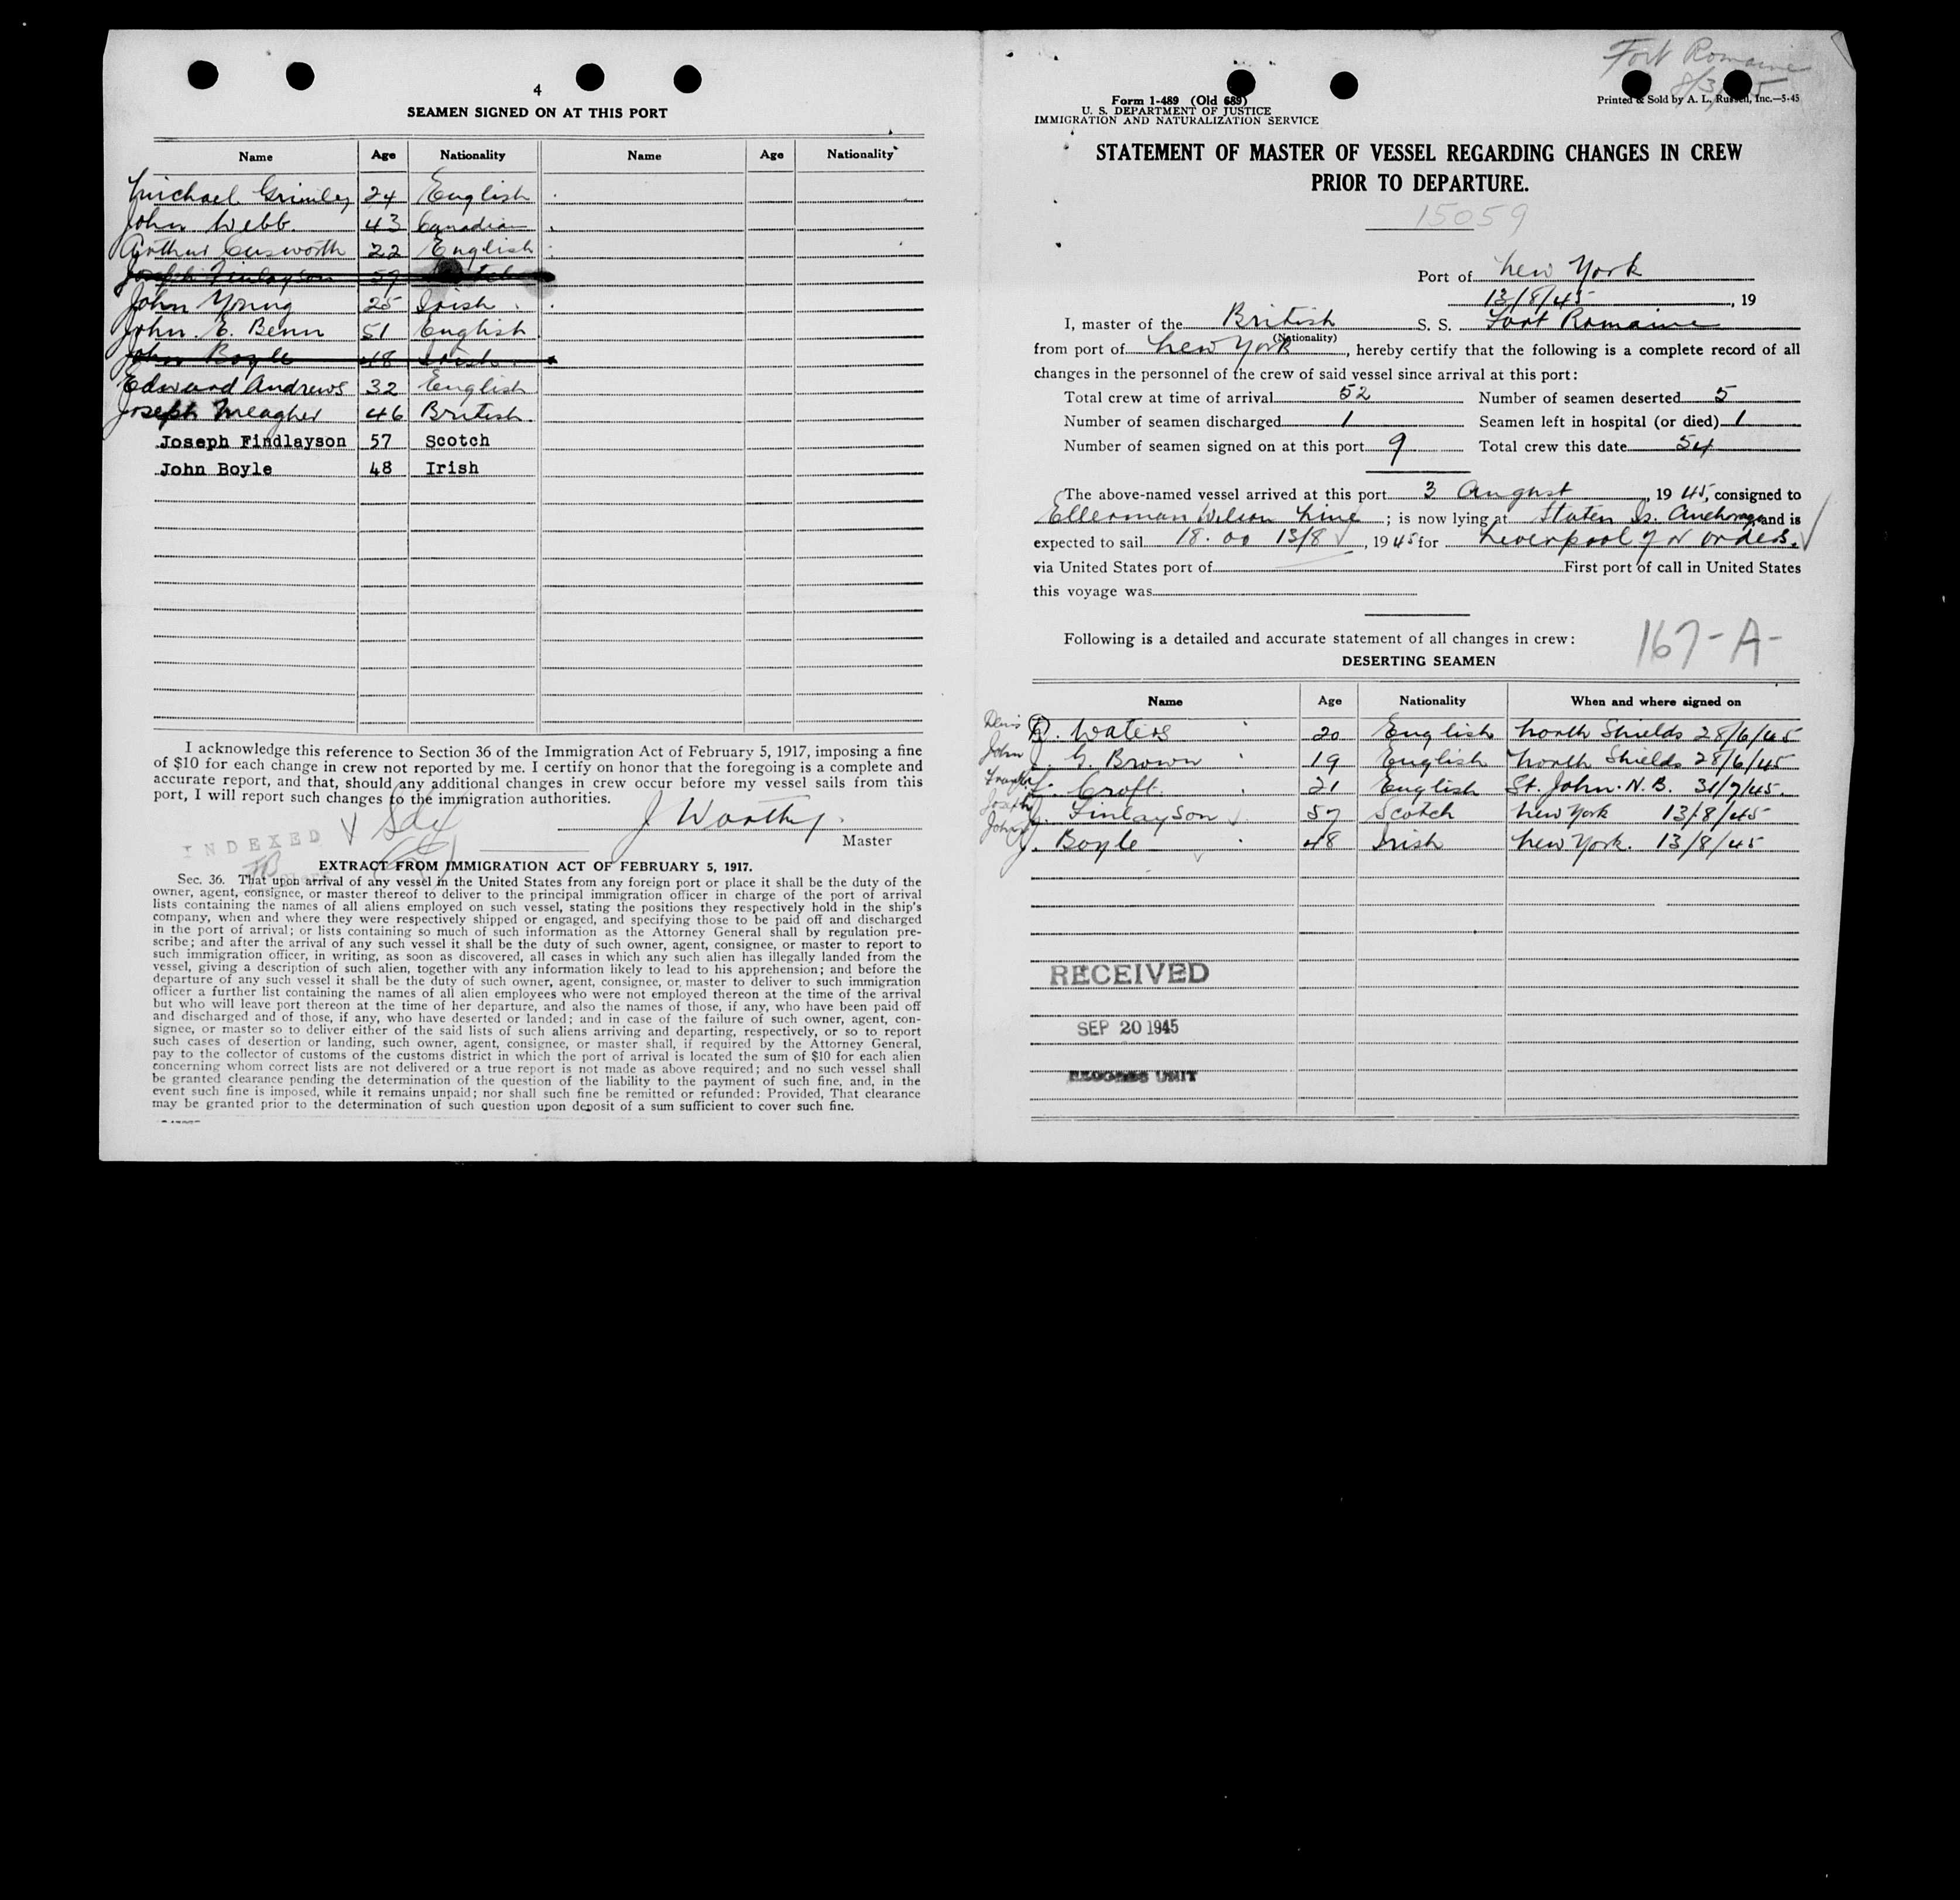 4
SEAMEN SIGNED ON AT THIS PORT
Name Age Nationality Name Age Nationality
Michael Grimley 24 English
John Webb. 43 Canadian
Arthur Cusworth 22 English
Joseph Finlayson 57 Scotch
John Young 25 Irish
John. E. Benn 51 English
John Boyle 48 Irish
Edward Andrews 32 English
Joseph Meagher 46 British
Joseph Findlayson 57 Scotch
John Boyle 48 Irish
I acknowledge this reference to Section 36 of the Immigration Act of February 5, 1917, imposing a fine
of $10 for each change in crew not reported by me. I certify on honor that the foregoing is a complete and
accurate report, and that, should any additional changes in crew occur before my vessel sails from this
port, I will report such changes to the immigration authorities.
J Worthy.
Master
INDEXED
EXTRACT FROM IMMIGRATION ACT OF FEBRUARY 5, 1917.
Sec. 36. That upon arrival of any vessel in the United States from any foreign port or place it shall be the duty of the
owner, agent, consignee, or master thereof to deliver to the principal immigration officer in charge of the port of arrival
lists containing the names of all aliens employed on such vessel, stating the positions they respectively hold in the ship's
company, when and where they were respectively shipped or engaged, and specifying those to be paid off and discharged
in the port of arrival; or lists containing so much of such information as the Attorney General shall by regulation pre-
scribe; and after the arrival of any such vessel it shall be the duty of such owner, agent, consignee, or master to report to
such immigration officer, in writing, as soon as discovered, all cases in which any such alien has illegally landed from the
vessel, giving a description of such alien, together with any information likely to lead to his apprehension; and before the
departure of any such vessel it shall be the duty of such owner, agent, consignee, or master to deliver to such immigration
officer a further list containing the names of all alien employees who were not employed thereon at the time of the arrival
but who will leave port thereon at the time of her departure, and also the names of those, if any, who have been paid off
and discharged and of those, if any, who have deserted or landed; and in case of the failure of such owner, agent, con-
signee, or master so to deliver either of the said lists of such aliens arriving and departing, respectively, or so to report
such cases of desertion or landing, such owner, agent, consignee, or master shall, if required by the Attorney General,
pay to the collector of customs of the customs district in which the port of arrival is located the sum of $10 for each alien
concerning whom correct lists are not delivered or a true report is not made as above required; and no such vessel shall
be granted clearance pending the determination of the question of the liability to the payment of such fine, and, in the
event such fine is imposed, while it remains unpaid; nor shall such fine be remitted or refunded: Provided, That clearance
may be granted prior to the determination of such question upon deposit of a sum sufficient to cover such fine.
Fort Romaine
8/3/45
Form 1-489 (Old 689) Printed & Sold by A. L. Russell, Inc.—5-45
U. S. DEPARTMENT OF JUSTICE
IMMIGRATION AND NATURALIZATION SERVICE
STATEMENT OF MASTER OF VESSEL REGARDING CHANGES IN CREW
PRIOR TO DEPARTURE.
15059
Port of New York
13/8/45, 19
I, master of the British S. S. Fort Romaine
(Nationality)
from port of New York, hereby certify that the following is a complete record of all
changes in the personnel of the crew of said vessel since arrival at this port:
Total crew at time of arrival 52 Number of seamen deserted 5
Number of seamen discharged 1 Seamen left in hospital (or died) 1
Number of seamen signed on at this port 9 Total crew this date 54
The above-named vessel arrived at this port 3 August, 1945, consigned to
Ellerman Wilson Line; is now lying at Staten Is. Anchorage and is
expected to sail 18.00 13/8, 1945 for Liverpool f or orders.
via United States port of First port of call in United States
this voyage was
Following is a detailed and accurate statement of all changes in crew:
167-A-
DESERTING SEAMEN
Name Age Nationality When and where signed on
Denis D. Waters 20 English North Shields 28/6/45
John J. G. Brown 19 English North Shields 28/6/45
Frank F. Croft. 21 English St. John. N.B. 31/7/45
Joseph J. Finlayson 57 Scotch New York 13/8/45
John J. Boyle 48 Irish New York. 13/8/45
RECEIVED
SEP 20 1945
RECORDS UNIT